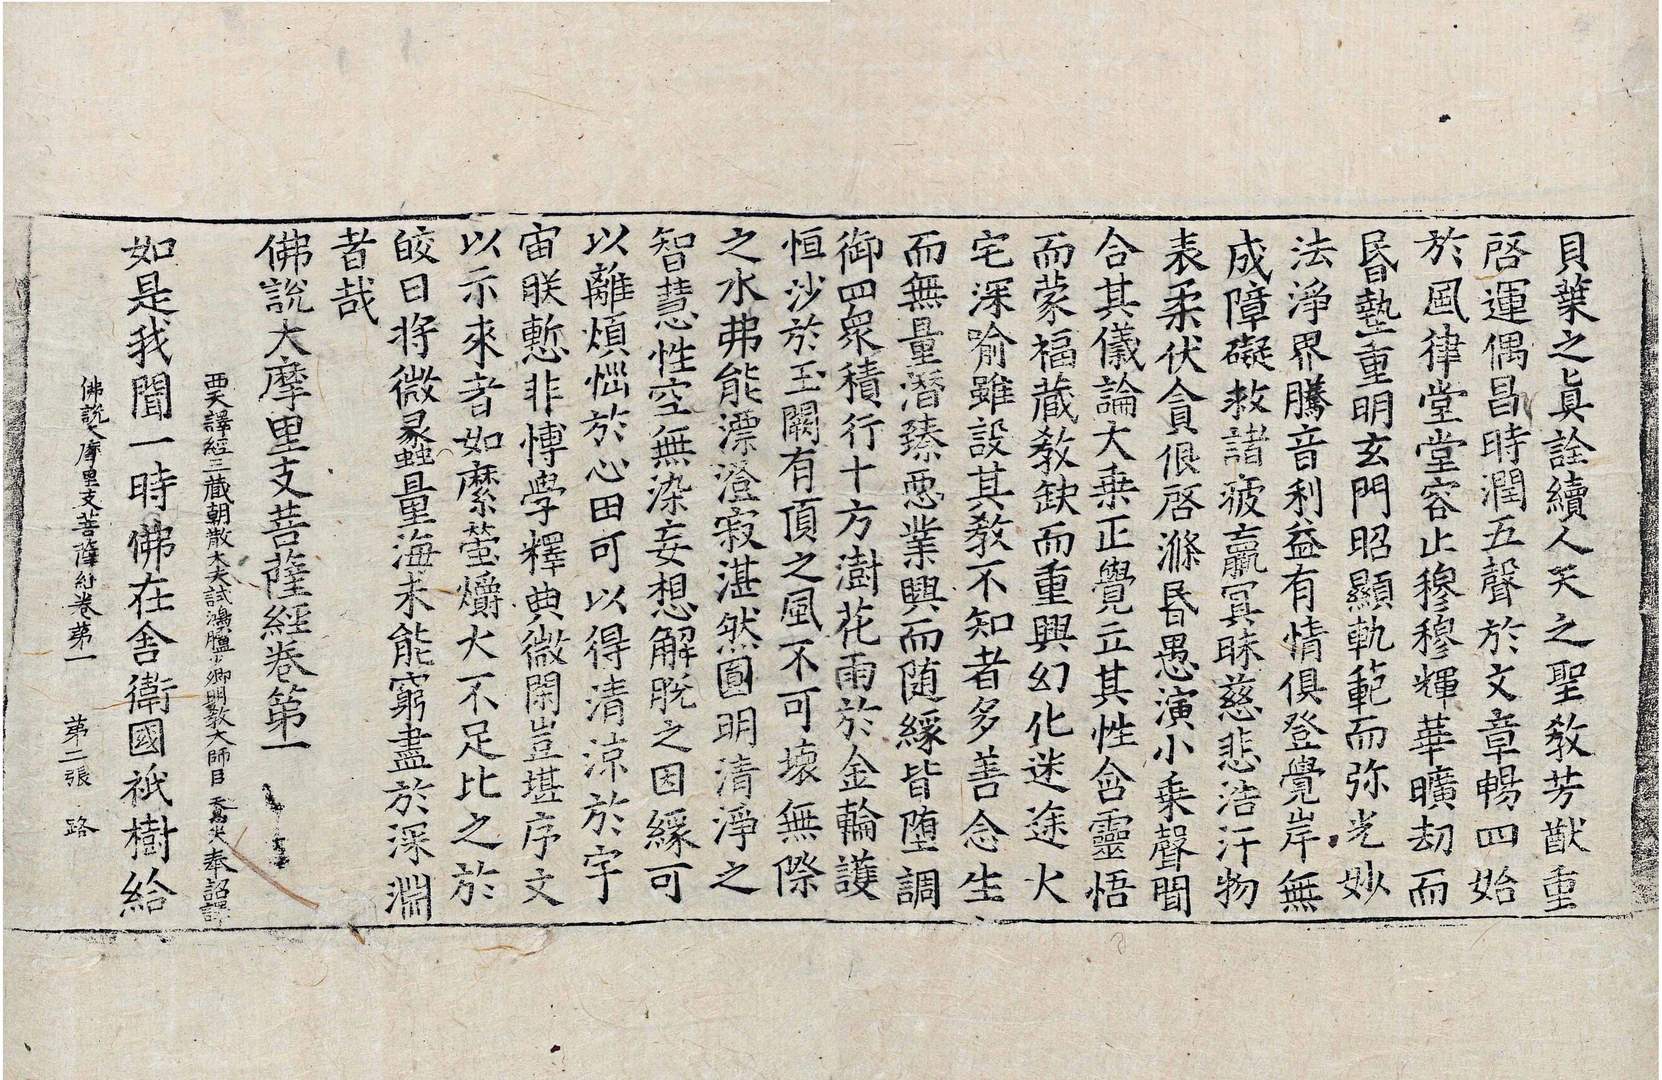 貝葉之眞詮續人天之聖敎芳猷重
啓運偶昌時潤五聲於文章暢四始
於風律堂堂容止穆穆輝華曠劫而
昏墊重明玄門昭顯軌範而弥光妙
法淨界騰音利益有情俱登覺岸無
成障礙救諸疲羸冥昧慈悲浩汗物
表柔伏貪佷啓滌昏愚演小乗聲聞
合其儀論大乗正覺立其性含靈悟
而蒙福藏敎缺而重興幻化迷途火
宅深喻雖設其敎不知者多善念生
而無量潛臻惡業興而随緣皆堕調
御四衆積行十方澍花雨於金輪護
恒沙於玉闕有頂之風不可壞無際
之水弗能漂澄寂湛然圓明清淨之
智慧性空無染妄想解脫之因緣可
以離煩惱於心田可以得清涼於宇
宙朕慙非博學釋典微閑豈堪序文
以示來者如縻螢爝火不足比之於
皎日将微蟸量海未能窮盡於深淵
者哉
佛說大摩里支菩薩經卷第一
西天譯經三藏朝散大夫試鴻臚少卿明敎大師臣 天息災奉詔譯
如是我聞一時佛在舎衛國祇樹給
佛說大摩里支菩薩経卷第一 第二張 路